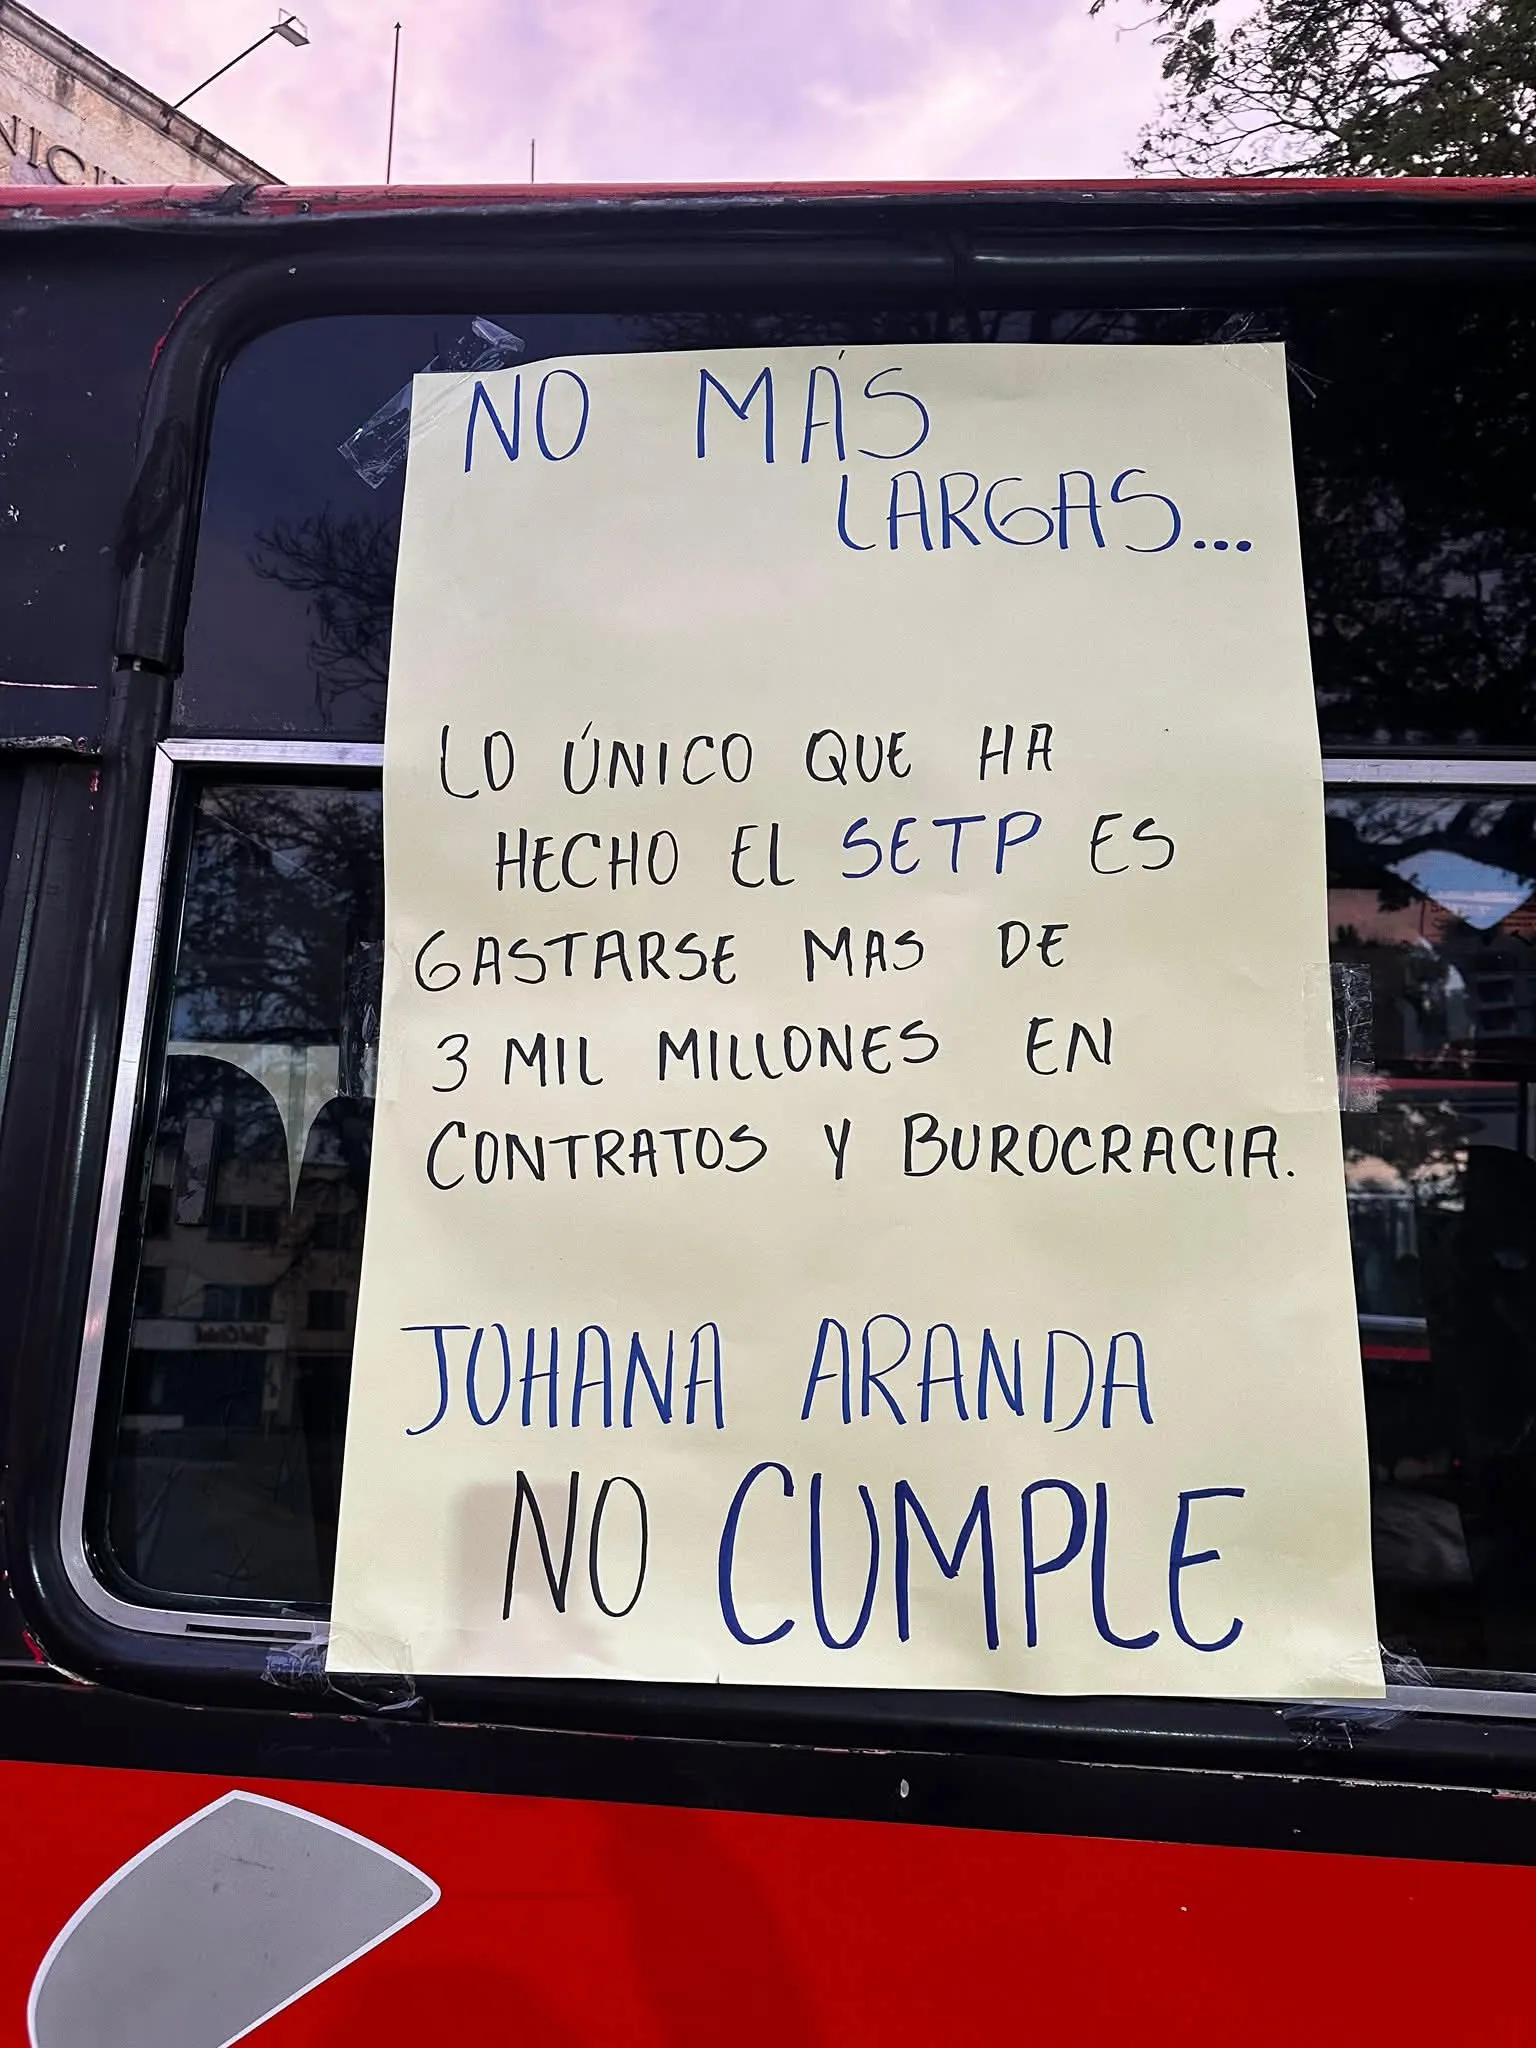 NICI
NO MÁS
LARGAS...
LO ÚNICO QUE HA
HECHO EL SETP ES
GASTARSE MAS DE
3 MIL MILLONES EN
CONTRATOS Y BUROCRACIA.
JOHANA ARANDA
NO CUMPLE